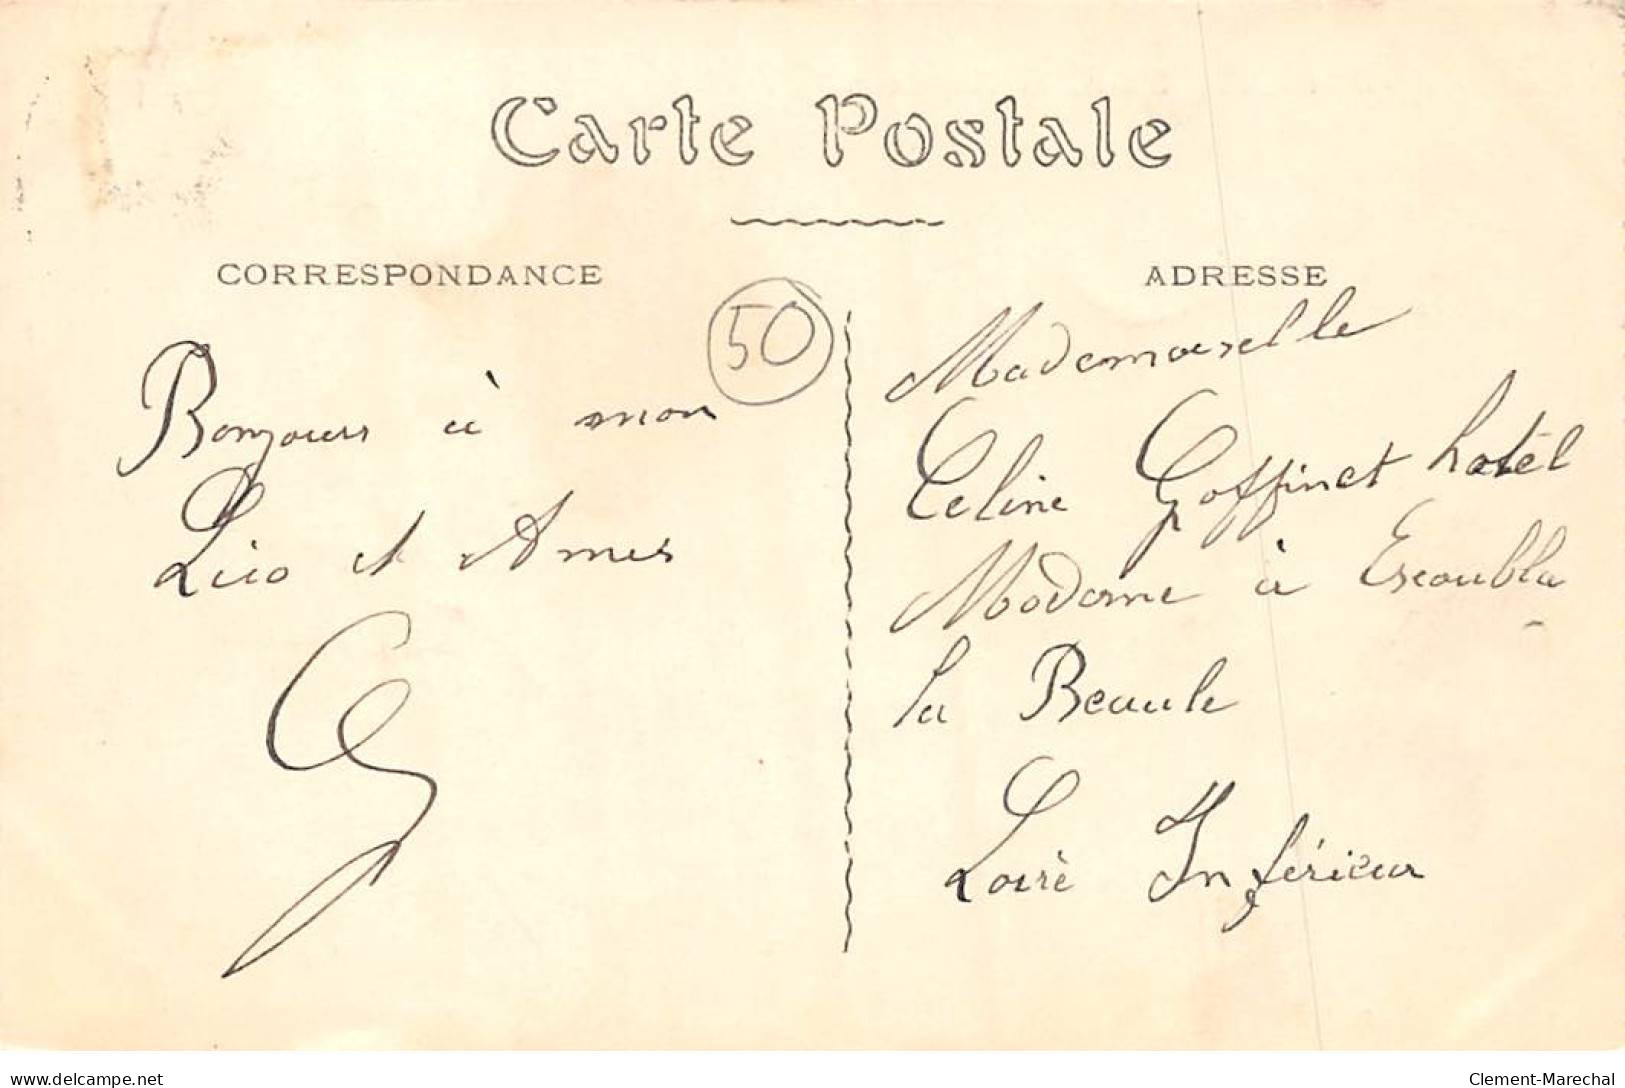 Carte Postale
CORRESPONDANCE
50
Bonjours à mon
et Amis
ADRESSE
Mademoiselle
Celine Goffinet hotel
Madame à Escoubla
la Beaule
Loire Inférieur
delcampe.net
Clement-Marechal